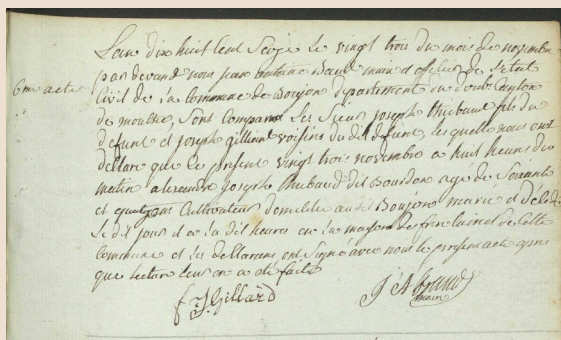 L'an dix huit Cent Seize Le vingt trois du mois de novembre
par devand nous jean antoine maire officier de l'Etat
6me acte
Civil de la Commune de Boujon département du doubs Canton
de mouthe, sont Comparu Les Sieur joseph thiebaud fils du
defunt et joseph gilliard voisins du dit defunt, les quelle nous ont
dellaré que le present vingt trois novembre a huit heures du
matin alexandre joseph thiebaud dit Bourdon age de Soixante
et ans Cultivateur domicilié au dit Boujons marié et délédé
Le dit jour a la dit heures en la maison de Cette
Commune et les dellarans ont Signé avec nous le present acte apres
que lecture leur en a été faite
f J Gillard
maire